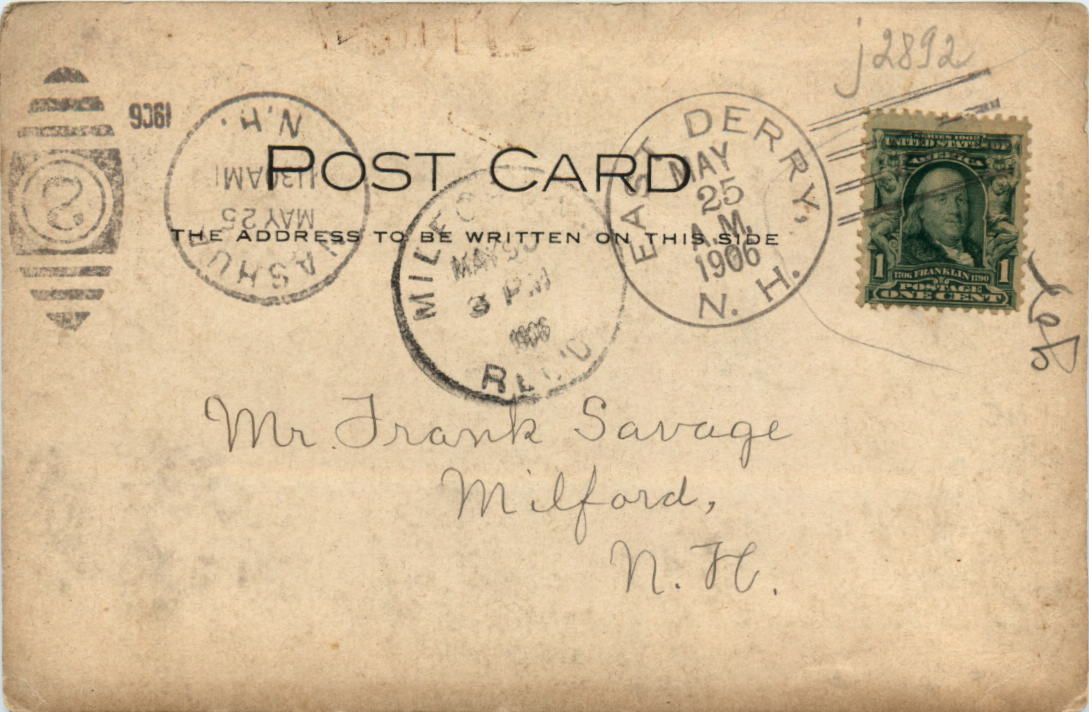 j2892
1906
N.H.
1130 AM
MAY 25
NASHUA
POST CARD
THE ADDRESS TO BE WRITTEN ON THIS SIDE
MAY
3 PM
1906
REC'D
EAST DERRY,
MAY
25
A.M.
1906
N. H.
SERIES 1902
UNITED STATES OF
AMERICA
1 1706 FRANKLIN 1790 1
POSTAGE
ONE CENT
Mr. Frank Savage
Milford,
N. H.